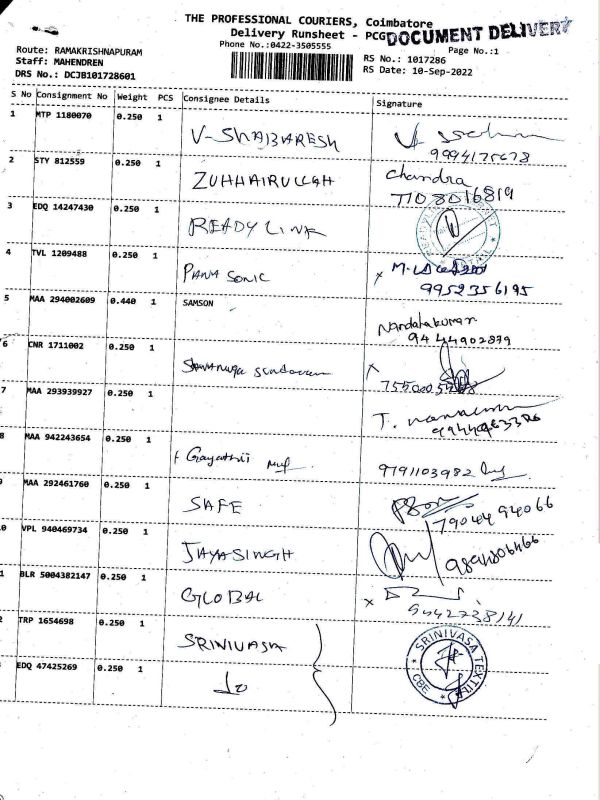 THE PROFESSIONAL COURIERS, Coimbatore
Delivery Runsheet - PCG
DOCUMENT DELIVERY
Phone No.:0422-3505555
Page No.:1
Route: RAMAKRISHNAPURAM
Staff: MAHENDREN
DRS No.: DCJB101728601
RS No.: 1017286
RS Date: 10-Sep-2022
S No Consignment No Weight PCS Consignee Details Signature
1 MTP 1180070 0.250 1 V-SHABARESH
9994175678
2 STY 812559 0.250 1 ZUHHAIRULLAH Chandra
7708016819
3 EDQ 14247430 0.250 1 READY LINK
4 TVL 1209488 0.250 1 PANA SONIC
9952356195
5 MAA 294002609 0.440 1 SAMSON Nandakumar
9444902879
6 CNR 1711002 0.250 1
7 MAA 293939927 0.250 1 T.
8 MAA 942243654 0.250 1 Gayathri 9791103982
9 MAA 292461760 0.250 1 SAFE
7904494066
0 VPL 940469734 0.250 1 JAYASINGH
1 BLR 5004382147 0.250 1 GLOBAL
9442738141
2 TRP 1654698 0.250 1 SRINIVASA SRINIVASA TEXTILE CBE
3 EDQ 47425269 0.250 1